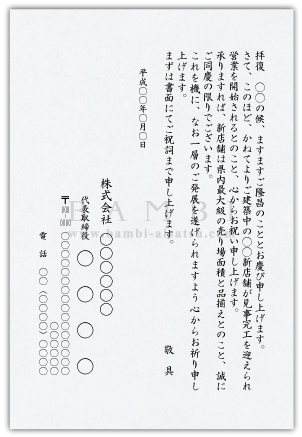 拝復、〇〇の候、ますますご隆昌のこととお慶び申し上げます。
さて、このほど、かねてよりご建築中の〇〇新店舗が見事完工を迎えられ
営業を開始されるとのこと、心からお祝い申し上げます。
承りますれば、新店舗は県内最大級の売り場面積と品揃えとのこと、誠に
ご同慶の限りでございます。
これを機に、なお一層のご発展を遂げられますよう心からお祈り申し
上げます。
まずは書面にてご祝詞まで申し上げます。
敬具
平成〇〇年〇月〇日
株式会社〇〇〇〇〇
代表取締役〇〇〇〇